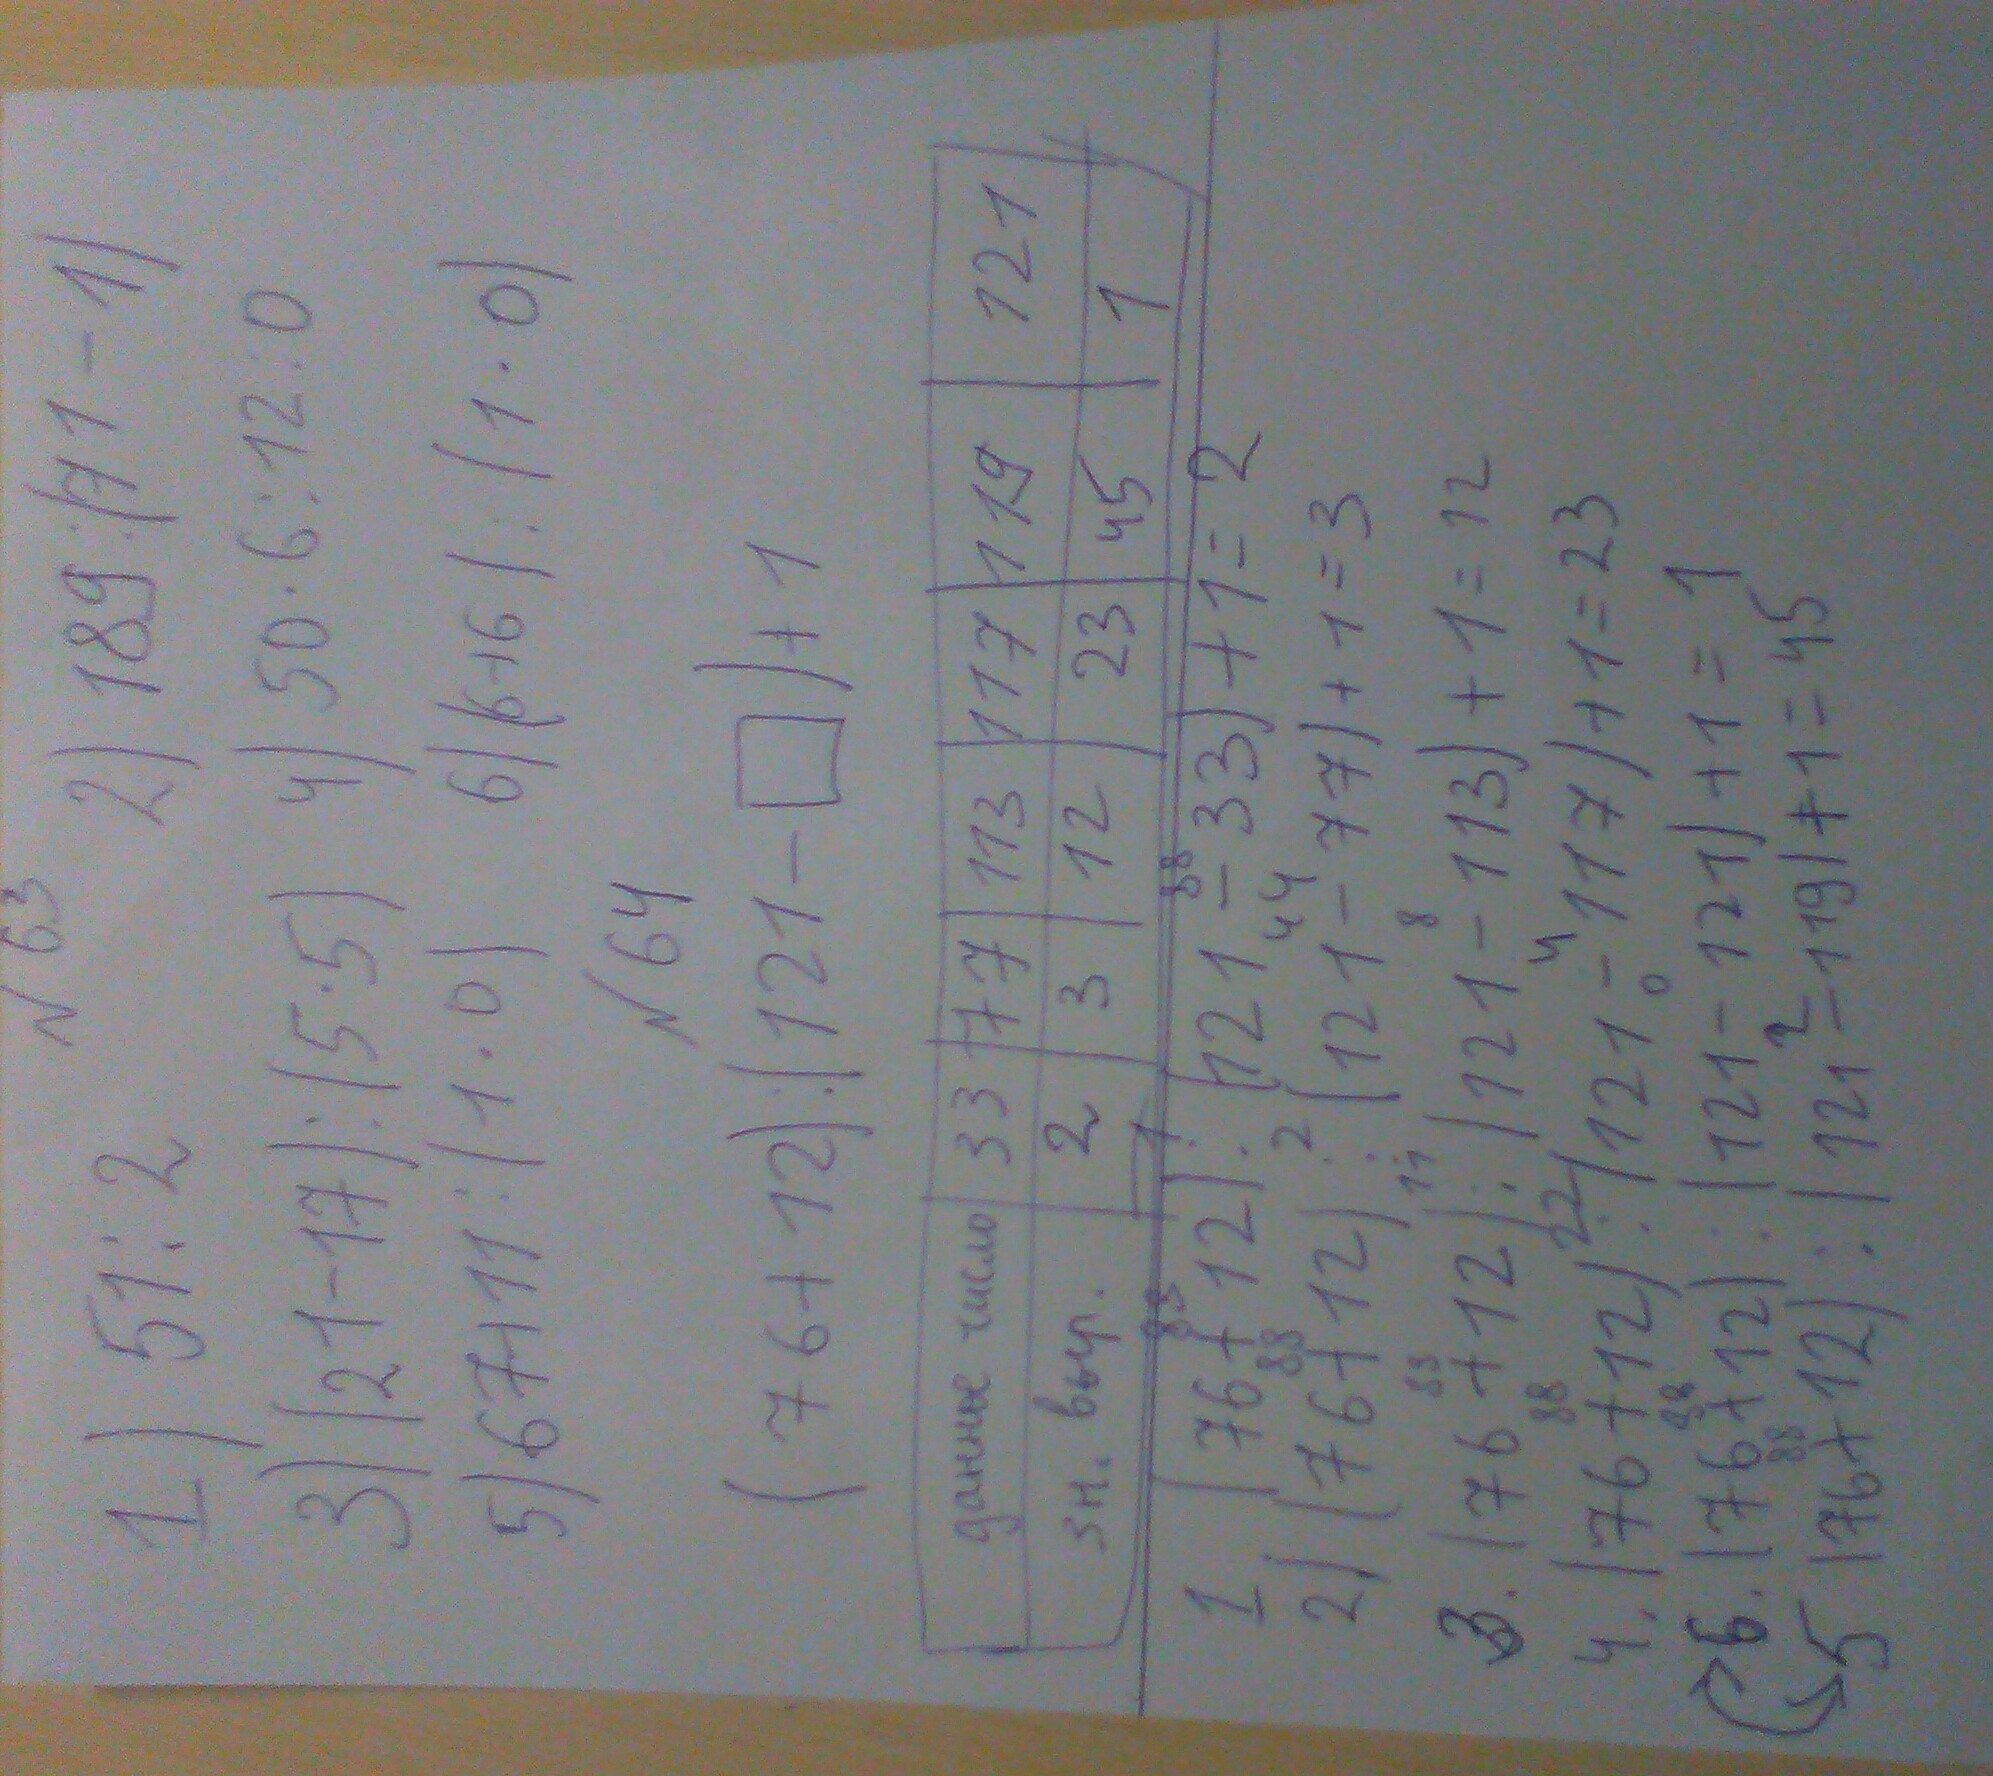 №63
1) 51:2 2) 189:(71-1)
3) (21-17):(5·5) 4) 50·6:12:0
5) 67+11:(1·0) 6) (6+6):(1·0)
№64
(76+12):(121-□)+1
данное число 33 77 113 117 119 121
зн. выр. 2 3 12 23 45 1
88 88
1 (76+12):(121-33)+1=2
88 2 44
2) (76+12):(121-77)+1=3
88 11 8
3. (76+12):(121-113)+1=12
88 22 4
4. (76+12):(121-117)+1=23
88 0
6. (76+12):(121-121)+1=1
88 2
5 (76+12):(121-119)+1=45